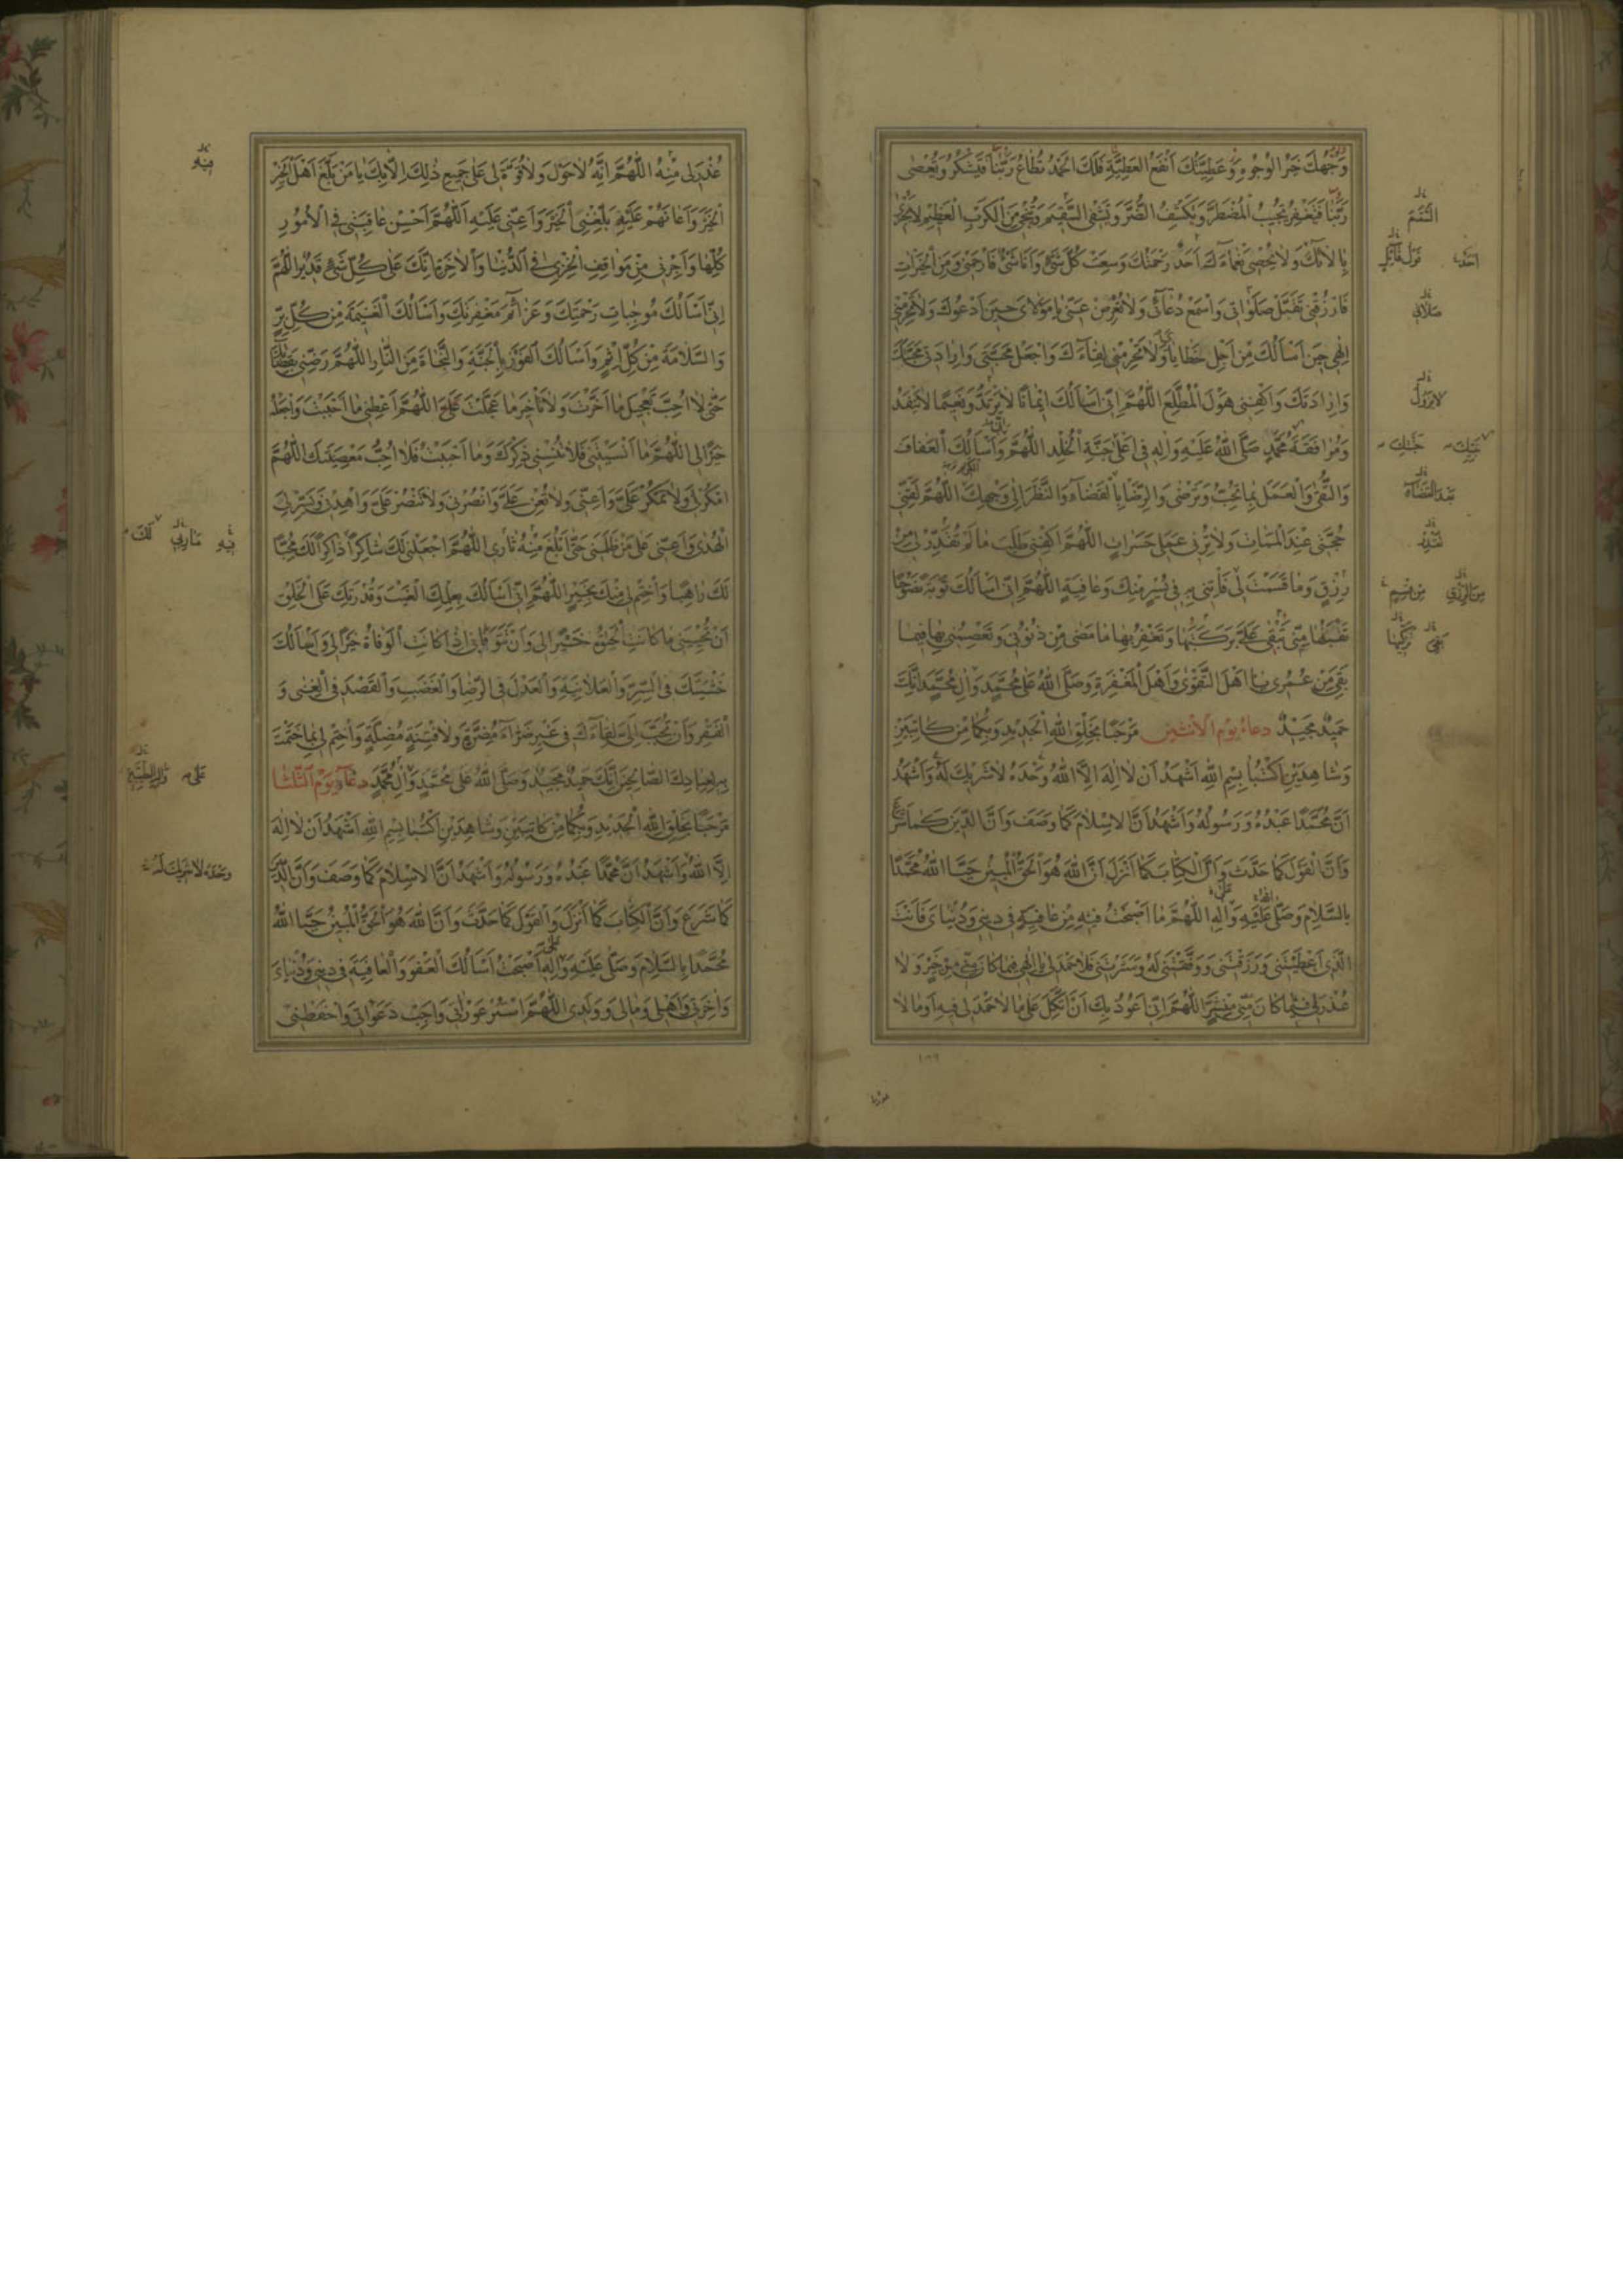 وَجْهُكَ خَيْرُ الْوُجُوهِ وَعَطِيَّتُكَ أَنْفَعُ الْعَطِيَّةِ فَلَكَ الْحَمْدُ تُطَاعُ رَبَّنَا فَتَشْكُرُ وَتُعْصٰى
رَبَّنَا فَتَغْفِرُ تُجِيبُ الْمُضْطَرَّ وَتَكْشِفُ الضُّرَّ وَتَشْفِى السَّقِيمَ وَتُنْجِى مِنَ الْكَرْبِ الْعَظِيمِ لَا يَجْزِى
بِاٰلَائِكَ وَلَا يُحْصِى نَعْمَاءَكَ أَحَدٌ رَحْمَتُكَ وَسِعَتْ كُلَّ شَيْءٍ وَأَنَا شَيْءٌ فَارْحَمْنِى وَمِنَ الْخَيْرَاتِ
فَارْزُقْنِى تَقَبَّلْ صَلَوَاتِى وَاسْمَعْ دُعَائِى وَلَا تُعْرِضْ عَنِّى يَا مَوْلَاىَ حِينَ أَدْعُوكَ وَلَا تَحْرِمْنِى
إِلٰهِى حِينَ أَسْأَلُكَ مِنْ أَجْلِ خَطَايَاىَ وَلَا تَحْرِمْنِى لِقَاءَكَ وَاجْعَلْ مَحَبَّتِى وَإِرَادَتِى مَحَبَّتَكَ
وَإِرَادَتَكَ وَاكْفِنِى هَوْلَ الْمُطَّلَعِ اللّٰهُمَّ إِنِّى أَسْأَلُكَ إِيمَانًا لَا يَرْتَدُّ وَنَعِيمًا لَا يَنْفَدُ
وَمُرَافَقَةَ مُحَمَّدٍ صَلَّى اللهُ عَلَيْهِ وَاٰلِهِ فِى أَعْلٰى جَنَّةِ الْخُلْدِ اللّٰهُمَّ وَأَسْأَلُكَ الْعَفَافَ
وَالتُّقٰى وَالْعَمَلَ بِمَا تُحِبُّ وَتَرْضٰى وَالرِّضَا بِالْقَضَاءِ وَالنَّظَرَ إِلٰى وَجْهِكَ اللّٰهُمَّ لَقِّنِّى
حُجَّتِى عِنْدَ الْمَمَاتِ وَلَا تُرِنِى عَمَلِى حَسَرَاتٍ اللّٰهُمَّ اكْفِنِى طَلَبَ مَا لَمْ تُقَدِّرْ لِى مِنْ
رِزْقٍ وَمَا قَسَمْتَ لِى فَأْتِنِى بِهِ فِى يُسْرٍ مِنْكَ وَعَافِيَةٍ اللّٰهُمَّ إِنِّى أَسْأَلُكَ تَوْبَةً نَصُوحًا
تَقْبَلُهَا مِنِّى تُبْقِى عَلَىَّ بَرَكَتَهَا وَتَغْفِرُ بِهَا مَا مَضٰى مِنْ ذُنُوبِى وَتَعْصِمُنِى بِهَا فِيمَا
بَقِىَ مِنْ عُمُرِى يَا أَهْلَ التَّقْوٰى وَأَهْلَ الْمَغْفِرَةِ وَصَلَّى اللهُ عَلٰى مُحَمَّدٍ وَاٰلِ مُحَمَّدٍ إِنَّكَ
حَمِيدٌ مَجِيدٌ دعاءُ يومِ الاثنين مَرْحَبًا بِخَلْقِ اللهِ الْجَدِيدِ وَبِكُمَا مِنْ كَاتِبَيْنِ
وَشَاهِدَيْنِ اكْتُبَا بِسْمِ اللهِ أَشْهَدُ أَنْ لَا إِلٰهَ إِلَّا اللهُ وَحْدَهُ لَا شَرِيكَ لَهُ وَأَشْهَدُ
أَنَّ مُحَمَّدًا عَبْدُهُ وَرَسُولُهُ وَأَشْهَدُ أَنَّ الْاِسْلَامَ كَمَا وَصَفَ وَأَنَّ الدِّينَ كَمَا شَرَعَ
وَأَنَّ الْقَوْلَ كَمَا حَدَّثَ وَأَنَّ الْكِتَابَ كَمَا أَنْزَلَ أَنَّ اللهَ هُوَ الْحَقُّ الْمُبِينُ حَيَّا اللهُ مُحَمَّدًا
بِالسَّلَامِ وَصَلَّى عَلَيْهِ وَاٰلِهِ اللّٰهُمَّ مَا أَصْبَحْتُ فِيهِ مِنْ عَافِيَةٍ فِى دِينِى وَدُنْيَاىَ فَأَنْتَ
الَّذِى أَعْطَيْتَنِى وَرَزَقْتَنِى وَوَفَّقْتَنِى لَهُ وَسَتَرْتَنِى فَلَا حَمْدَ لِى يَا إِلٰهِى فِيمَا كَانَ مِنِّى مِنْ خَيْرٍ وَلَا
عُذْرَ لِى فِيمَا كَانَ مِنِّى مِنْ شَرٍّ اللّٰهُمَّ إِنِّى أَعُوذُ بِكَ أَنْ أَتَّكِلَ عَلٰى مَا لَا حَمْدَ لِى فِيهِ أَوْ مَا لَا
عُذْرَ لِى مِنْهُ اللّٰهُمَّ إِنَّهُ لَا حَوْلَ وَلَا قُوَّةَ لِى عَلٰى جَمِيعِ ذٰلِكَ إِلَّا بِكَ يَا مَنْ بَلَّغَ أَهْلَ الْخَيْرِ
الْخَيْرَ وَأَعَانَهُمْ عَلَيْهِ بَلِّغْنِى الْخَيْرَ وَأَعِنِّى عَلَيْهِ اللّٰهُمَّ أَحْسِنْ عَاقِبَتِى فِى الْأُمُورِ
كُلِّهَا وَأَجِرْنِى مِنْ مَوَاقِفِ الْخِزْىِ فِى الدُّنْيَا وَالْاٰخِرَةِ إِنَّكَ عَلٰى كُلِّ شَيْءٍ قَدِيرٌ اللّٰهُمَّ
إِنِّى أَسْأَلُكَ مُوجِبَاتِ رَحْمَتِكَ وَعَزَائِمَ مَغْفِرَتِكَ وَأَسْأَلُكَ الْغَنِيمَةَ مِنْ كُلِّ بِرٍّ
وَالسَّلَامَةَ مِنْ كُلِّ إِثْمٍ وَأَسْأَلُكَ الْفَوْزَ بِالْجَنَّةِ وَالنَّجَاةَ مِنَ النَّارِ اللّٰهُمَّ رَضِّنِى بِقَضَائِكَ
حَتّٰى لَا أُحِبَّ تَعْجِيلَ مَا أَخَّرْتَ وَلَا تَأْخِيرَ مَا عَجَّلْتَ عَلَىَّ اللّٰهُمَّ أَعْطِنِى مَا أَحْبَبْتُ وَاجْعَلْهُ
خَيْرًا لِى اللّٰهُمَّ مَا أَنْسَيْتَنِى فَلَا تُنْسِنِى ذِكْرَكَ وَمَا أَحْبَبْتُ فَلَا أُحِبُّ مَعْصِيَتَكَ اللّٰهُمَّ
امْكُرْ لِى وَلَا تَمْكُرْ عَلَىَّ وَأَعِنِّى وَلَا تُعِنْ عَلَىَّ وَانْصُرْنِى وَلَا تَنْصُرْ عَلَىَّ وَاهْدِنِى وَيَسِّرْ لِى
الْهُدٰى وَأَعِنِّى عَلٰى مَنْ ظَلَمَنِى حَتّٰى أَبْلُغَ مِنْهُ ثَارِى اللّٰهُمَّ اجْعَلْنِى لَكَ شَاكِرًا ذَاكِرًا لَكَ مُحِبًّا
لَكَ رَاهِبًا وَاخْتِمْ لِى مِنْكَ بِخَيْرٍ اللّٰهُمَّ إِنِّى أَسْأَلُكَ بِعِلْمِكَ الْغَيْبَ وَقُدْرَتِكَ عَلَى الْخَلْقِ
أَنْ تُحْيِيَنِى مَا كَانَتِ الْحَيٰوةُ خَيْرًا لِى وَأَنْ تَتَوَفَّانِى إِذَا كَانَتِ الْوَفَاةُ خَيْرًا لِى وَأَسْأَلُكَ
خَشْيَتَكَ فِى السِّرِّ وَالْعَلَانِيَةِ وَالْعَدْلَ فِى الرِّضَا وَالْغَضَبِ وَالْقَصْدَ فِى الْغِنٰى وَ
الْفَقْرِ وَأَنْ تُحَبِّبَ إِلَىَّ لِقَاءَكَ فِى غَيْرِ ضَرَّاءَ مُضِرَّةٍ وَلَا فِتْنَةٍ مُضِلَّةٍ وَاخْتِمْ لِى بِمَا خَتَمْتَ
بِهِ لِعِبَادِكَ الصَّالِحِينَ إِنَّكَ حَمِيدٌ مَجِيدٌ وَصَلَّى اللهُ عَلٰى مُحَمَّدٍ وَاٰلِ مُحَمَّدٍ دعاءُ يَوْمِ الثَّلٰثَا
مَرْحَبًا بِخَلْقِ اللهِ الْجَدِيدِ وَبِكُمَا مِنْ كَاتِبَيْنِ وَشَاهِدَيْنِ اكْتُبَا بِسْمِ اللهِ أَشْهَدُ أَنْ لَا إِلٰهَ
إِلَّا اللهُ وَأَشْهَدُ أَنَّ مُحَمَّدًا عَبْدُهُ وَرَسُولُهُ وَأَشْهَدُ أَنَّ الْاِسْلَامَ كَمَا وَصَفَ وَأَنَّ الدِّينَ
كَمَا شَرَعَ وَأَنَّ الْكِتَابَ كَمَا أَنْزَلَ وَالْقَوْلَ كَمَا حَدَّثَ وَأَنَّ اللهَ هُوَ الْحَقُّ الْمُبِينُ حَيَّا اللهُ
مُحَمَّدًا بِالسَّلَامِ وَصَلَّى عَلَيْهِ وَاٰلِهِ أَصْبَحْتُ أَسْأَلُكَ الْعَفْوَ وَالْعَافِيَةَ فِى دِينِى وَدُنْيَاىَ
وَاٰخِرَتِى وَأَهْلِى وَمَالِى وَوَلَدِى اللّٰهُمَّ اسْتُرْ عَوْرَاتِى وَأَجِبْ دَعَوَاتِى وَاحْفَظْنِى